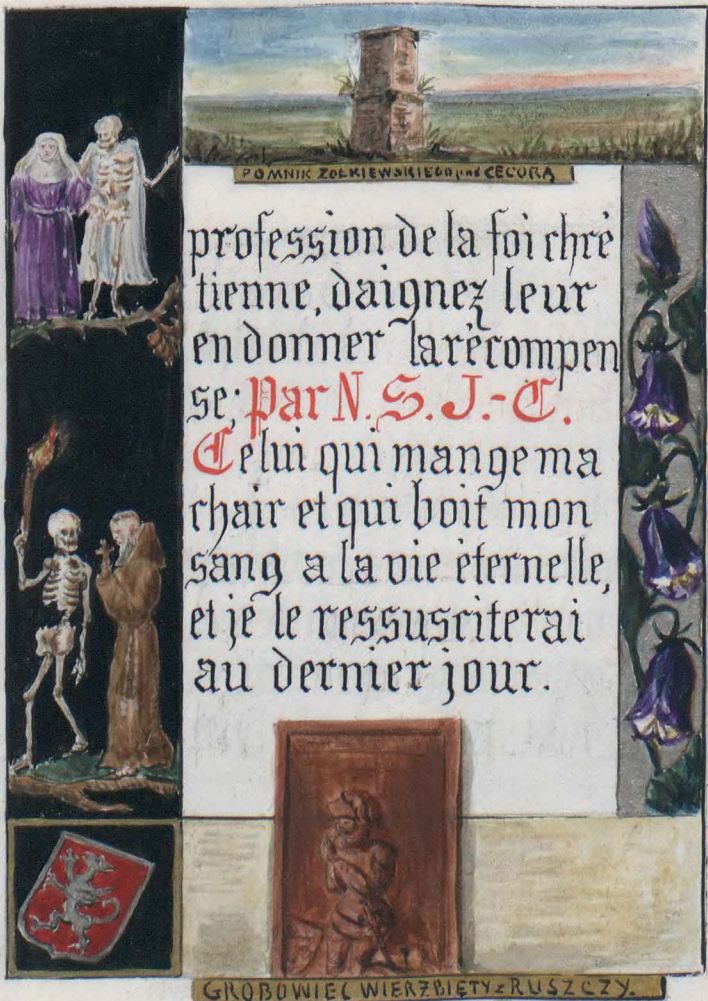 POMNIK ZOŁKIEWSKIEGO pod CECORĄ
profession de la foi chré
tienne, daignez leur
en donner la récompen
se; Par N. S. J.-C.
Celui qui mange ma
chair et qui boit mon
sang a la vie éternelle,
et je le ressusciterai
au dernier jour.
GROBOWIEC WIERZBIĘTY z RUSZCZY.